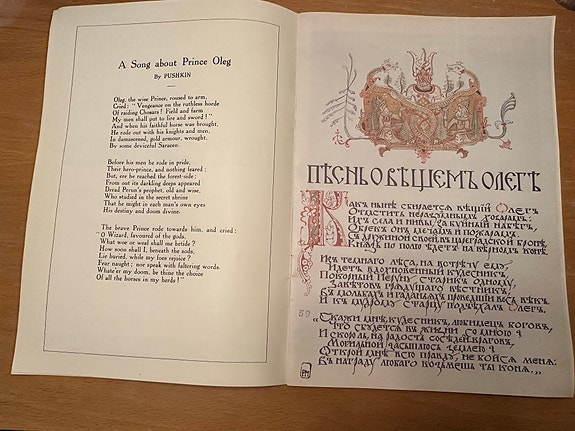 A Song about Prince Oleg
By PUSHKIN
Oleg, the wise Prince, roused to arm,
Cried: "Vengeance on the ruthless horde
Of raiding Chosars! Field and farm
My men shall put to fire and sword!"
And when his faithful horse was brought,
He rode out with his knights and men,
In damascened, gold armour, wrought,
By some deviceful Saracen.
Before his men he rode in pride,
Their hero-prince, and nothing feared;
But, ere he reached the forest-side;
From out its darkling deeps appeared
Dread Perun's prophet, old and wise,
Who studied in the secret shrine
That he might in each man's own eyes
His destiny and doom divine.
The brave Prince rode towards him, and cried:
"O Wizard, favoured of the gods,
What woe or weal shall me betide?
How soon shall I, beneath the sods,
Lie buried, while my foes rejoice?
Fear naught; nor speak with faltering words.
Whate'er my doom, be thine the choice
Of all the horses in my herds!"
ПѢСНЬ О ВѢЩЕМЪ ОЛЕГѢ
Какъ нынѣ сбирается вѣщій Олегъ
Отмстить неразумнымъ хозарамъ:
Ихъ села и нивы, за буйный набѣгъ,
Обрекъ онъ мечамъ и пожарамъ.
Съ дружиной своей, въ цареградской бронѣ,
Князь по полю ѣдетъ на вѣрномъ конѣ.
Изъ темнаго лѣса, на встрѣчу ему,
Идетъ вдохновенный кудесникъ,
Покорный Перуну старикъ одному,
Завѣтовъ грядущаго вѣстникъ,
Въ мольбахъ и гаданьяхъ проведшій весь вѣкъ.
И къ мудрому старцу подъѣхалъ Олегъ.
"Скажи мнѣ, кудесникъ, любимецъ боговъ,
Что сбудется въ жизни со мною?
И скоро ль, на радость сосѣдей-враговъ,
Могильной засыплюсь землею?
Открой мнѣ всю правду, не бойся меня:
Въ награду любаго возьмешь ты коня."